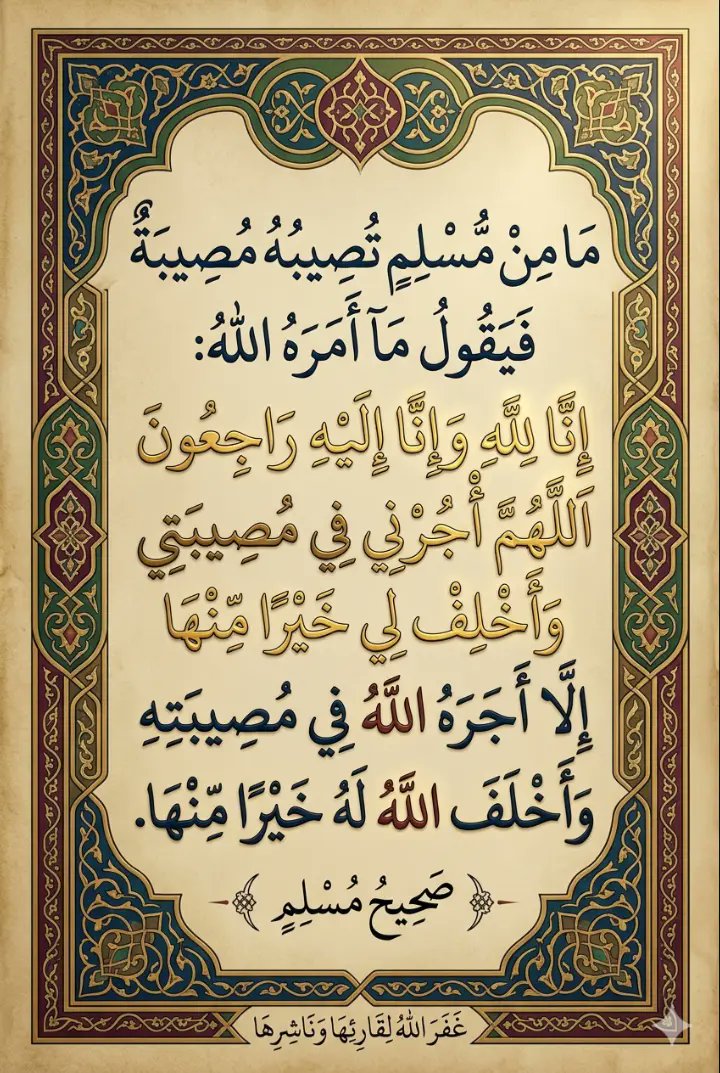 مَا مِنْ مُّسْلِمٍ تُصِيبُهُ مُصِيبَةٌ
فَيَقُولُ مَآ أَمَرَهُ اللهُ:
إِنَّا لِلَّهِ وَإِنَّا إِلَيْهِ رَاجِعُونَ
اَللَّهُمَّ أْجُرْنِي فِي مُصِيبَتِي
وَأَخْلِفْ لِي خَيْرًا مِّنْهَا
إِلَّا أَجَرَهُ اللَّهُ فِي مُصِيبَتِهِ
وَأَخْلَفَ اللَّهُ لَهُ خَيْرًا مِّنْهَا.
صَحِيحُ مُسْلِمٍ
غَفَرَ اللهُ لِقَارِئِهَا وَنَاشِرِهَا